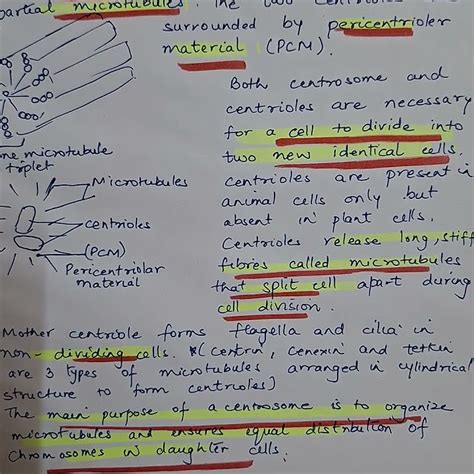 partial microtubules. The two centrioles
surrounded by pericentrioler
material (PCM).
Both centrosome and
centrioles are necessary
for a cell to divide into
two new identical cells.
centrioles are present in
animal cells only but
absent in plant cells.
Centrioles release long, stiff
fibres called microtubules
that split cell apart during
cell division.
one microtubule
triplet
Microtubules
centrioles
(PCM)
Pericentriolar
material
Mother centriole forms flagella and cilia in
non-dividing cells. *(Centrin, Cenexin and tektin
are 3 types of microtubules arranged in cylindrical
structure to form centrioles)
The main purpose of a centrosome is to organize
microtubules and ensures equal distribution of
chromosomes in daughter cells.